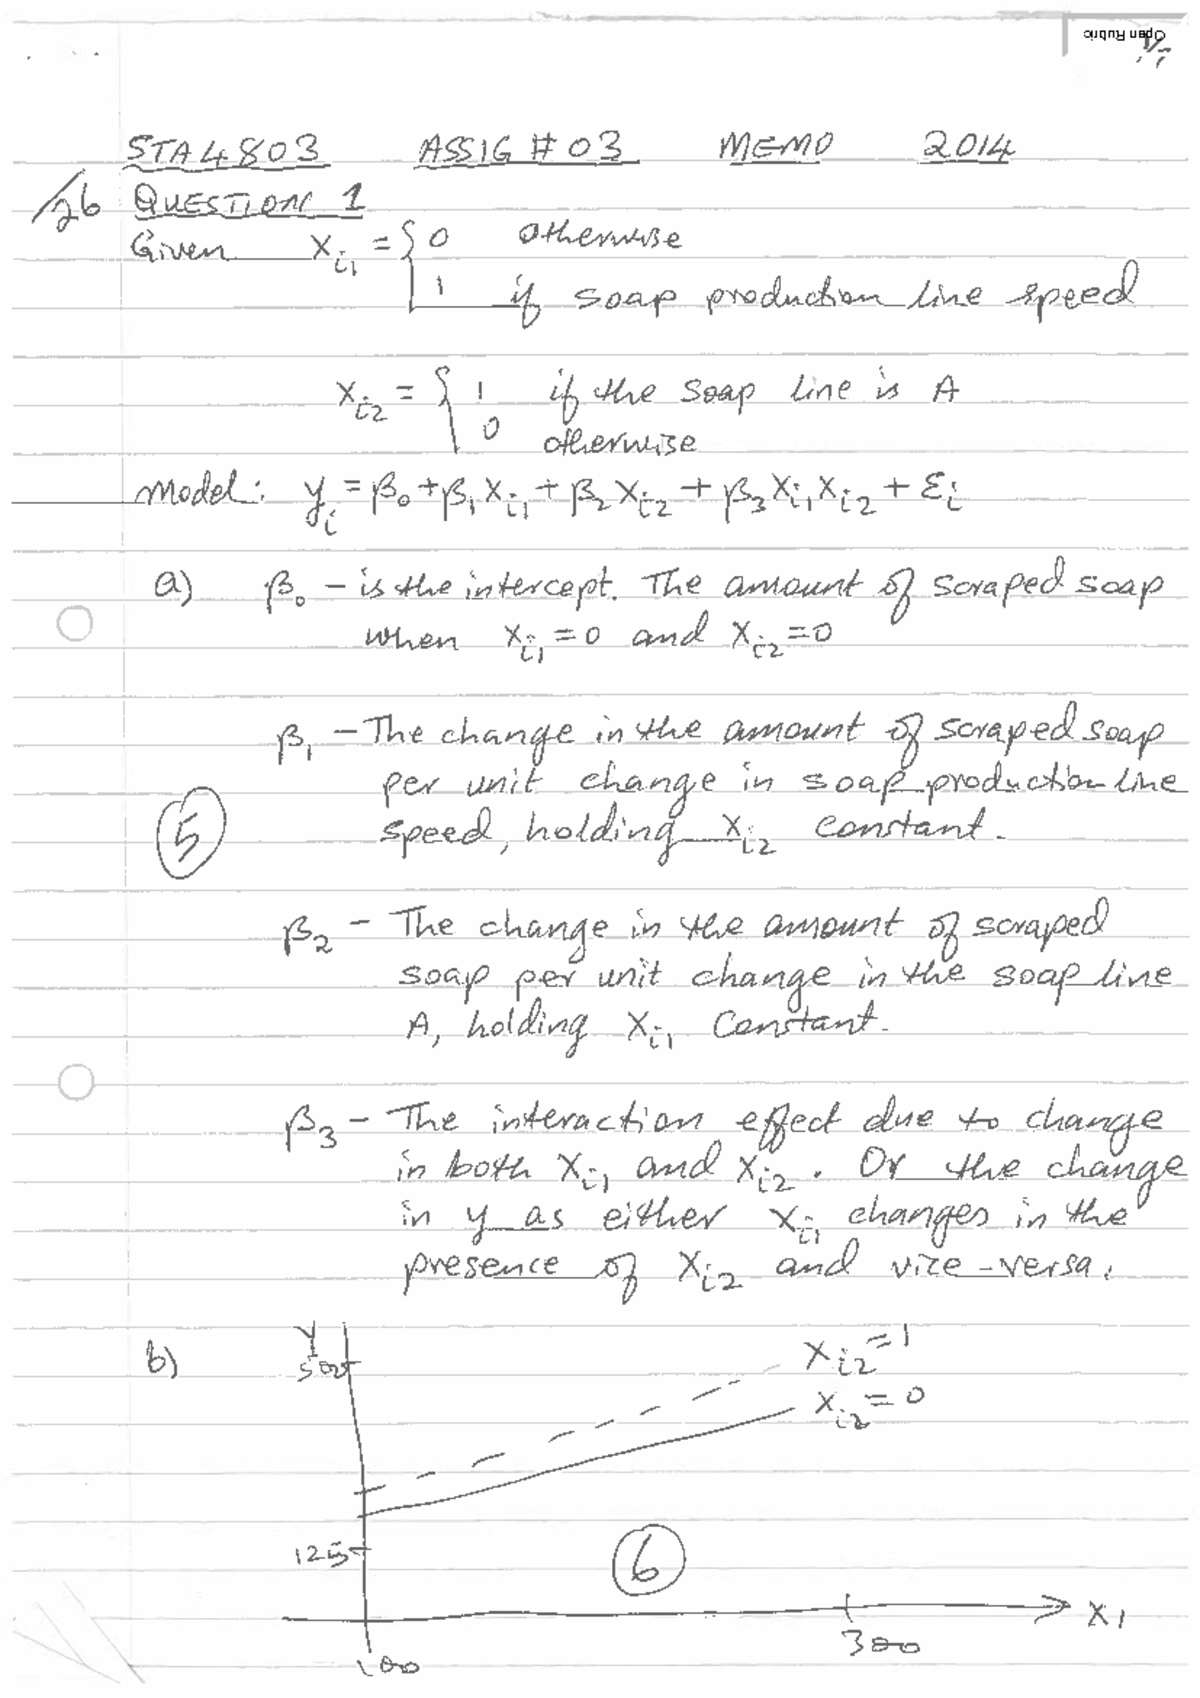 Open Rubric
STA4803 ASSIG # 03 MEMO 2014
/26 QUESTION 1
Given X_i1 = { 0 otherwise
1 if soap production line speed
X_i2 = { 1 if the soap line is A
0 otherwise
Model: y_i = β_0 + β_1 X_i1 + β_2 X_i2 + β_3 X_i1 X_i2 + ε_i
a) β_0 – is the intercept. The amount of scraped soap
when X_i1 = 0 and X_i2 = 0
β_1 – The change in the amount of scraped soap
per unit change in soap production line
speed, holding X_i2 constant.
5
β_2 – The change in the amount of scraped
soap per unit change in the soap line
A, holding X_i1 constant.
β_3 – The interaction effect due to change
in both X_i1 and X_i2. Or the change
in y as either X_i1 changes in the
presence of X_i2 and vice-versa.
b) Y
500
X_i2 = 1
X_i2 = 0
125
6
X_1
100 300